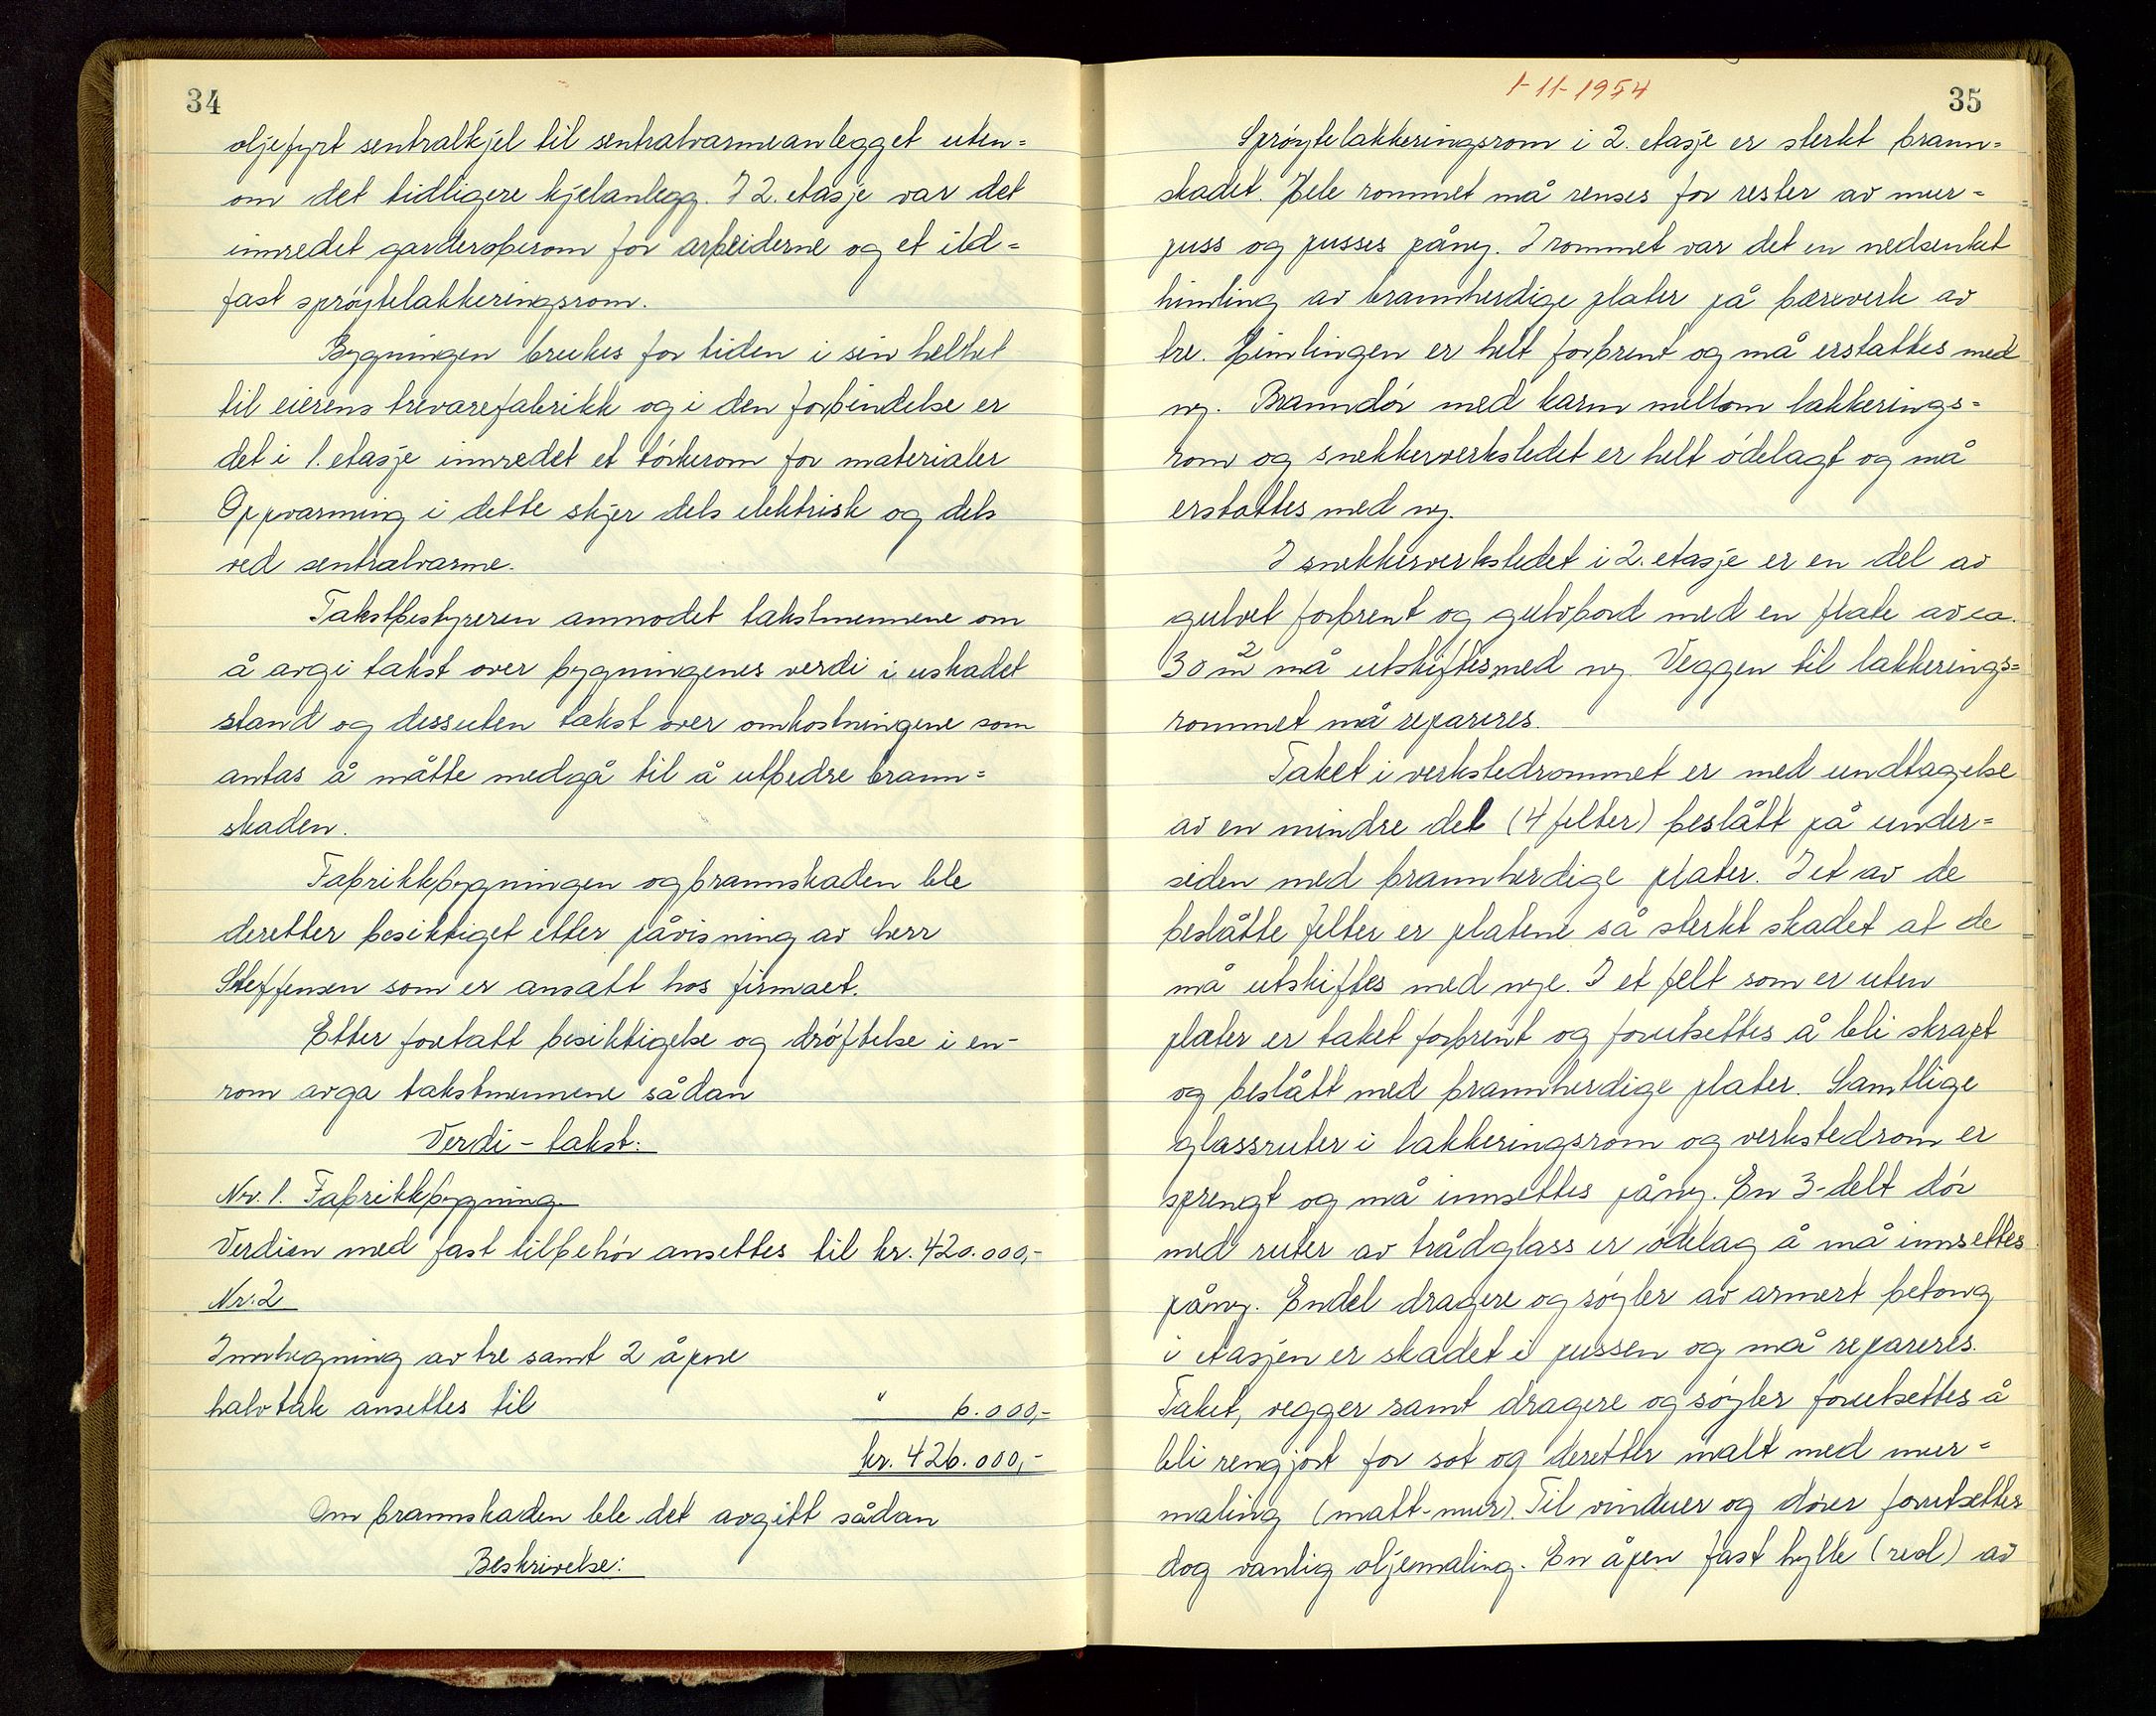 34
oljefyrt sentralkjel til sentralvarmeanlegget uten=
om det tidligere kjelanlegg. I 2. etasje var det
innredet garderoberom for arbeiderne og et ild=
fast sprøytelakkeringsrom.
Bygningen brukes for tiden i sin helhet
til eierens trevarefabrikk og i den forbindelse er
det i 1. etasje innredet et tørkerom for materialer
Oppvarming i dette skjer dels elektrisk og dels
ved sentralvarme.
Takstbestyreren anmodet takstmennene om
å avgi takst over bygningenes verdi i uskadet
stand og dessuten takst over omkostningene som
antas å måtte medgå til å utbedre brann=
skaden.
Fabrikkbygningen og brannskaden ble
deretter besiktiget etter påvisning av herr
Steffensen som er ansatt hos firmaet.
Etter foretatt besiktigelse og drøftelse i en-
rom avga takstmennene sådan
Verdi - takst:
Nr. 1. Fabrikkbygning
Verdien med fast tilbehør ansettes til kr. 420.000,-
Nr. 2
Innhegning av tre samt 2 åpne
halvtak ansettes til " 6.000,-
kr. 426.000,-
Om brannskaden ble det avgitt sådan
Beskrivelse:
1-11-1954
35
Sprøytelakkeringsrom i 2. etasje er sterkt brann=
skadet. Hele rommet må renses for rester av mur=
puss og pusses påny. I rommet var det en nedsenket
himling av brannherdige plater på bæreverk av
tre. Himlingen er helt forbrent og må erstattes med
ny. Branndør med karm mellom lakkerings=
rom og snekkerverkstedet er helt ødelagt og må
erstattes med ny.
I snekkerverkstedet i 2. etasje er en del av
gulvet forbrent og gulvbord med en flate av ca.
30 m² må utskiftes med ny. Veggen til lakkerings=
rommet må repareres.
Taket i verkstedrommet er med undtagelse
av en mindre del (4 felter) beslått på under=
siden med brannherdige plater. I et av de
beslåtte felter er platene så sterkt skadet at de
må utskiftes med nye. I et felt som er uten
plater er taket forbrent og forutsettes å bli skrapt
og beslått med brannherdige plater. Samtlige
glassruter i lakkeringsrom og verkstedrom er
sprengt og må innsettes påny. En 3-delt dør
med ruter av trådglass er ødelag å må innsettes
påny. Endel dragere og søyler av armert betong
i etasjen er skadet i pussen og må repareres.
Taket, vegger samt dragere og søyler forutsettes å
bli rengjort for sot og deretter malt med mur=
maling (matt-mur). Til vinduer og dører forutsettes
dog vanlig oljemaling. En åpen fast hylle (reol) av